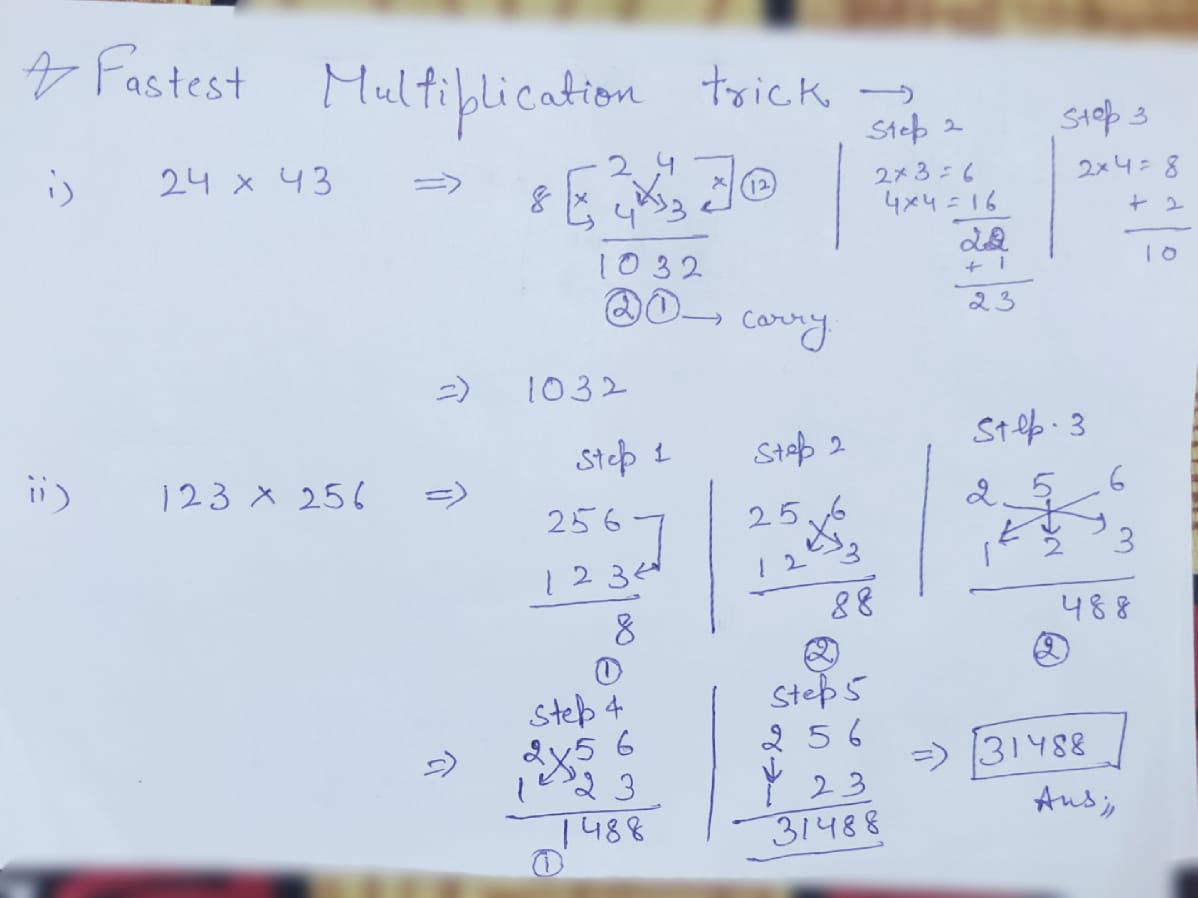 ☆ Fastest Multiplication trick →
i) 24 × 43 ⇒
8 [× 2 4 ×] ⑫
4 3
1032
② ① → carry
Step 2
2×3=6
4×4=16
22
+ 1
23
Step 3
2×4=8
+ 2
10
⇒ 1032
ii) 123 × 256 ⇒
Step 1
256
123
8
①
Step 2
256
123
88
②
Step. 3
2 5 6
1 2 3
488
②
⇒
Step 4
2 5 6
1 2 3
1488
①
Step 5
2 5 6
1 2 3
31488
⇒ 31488
Ans;,